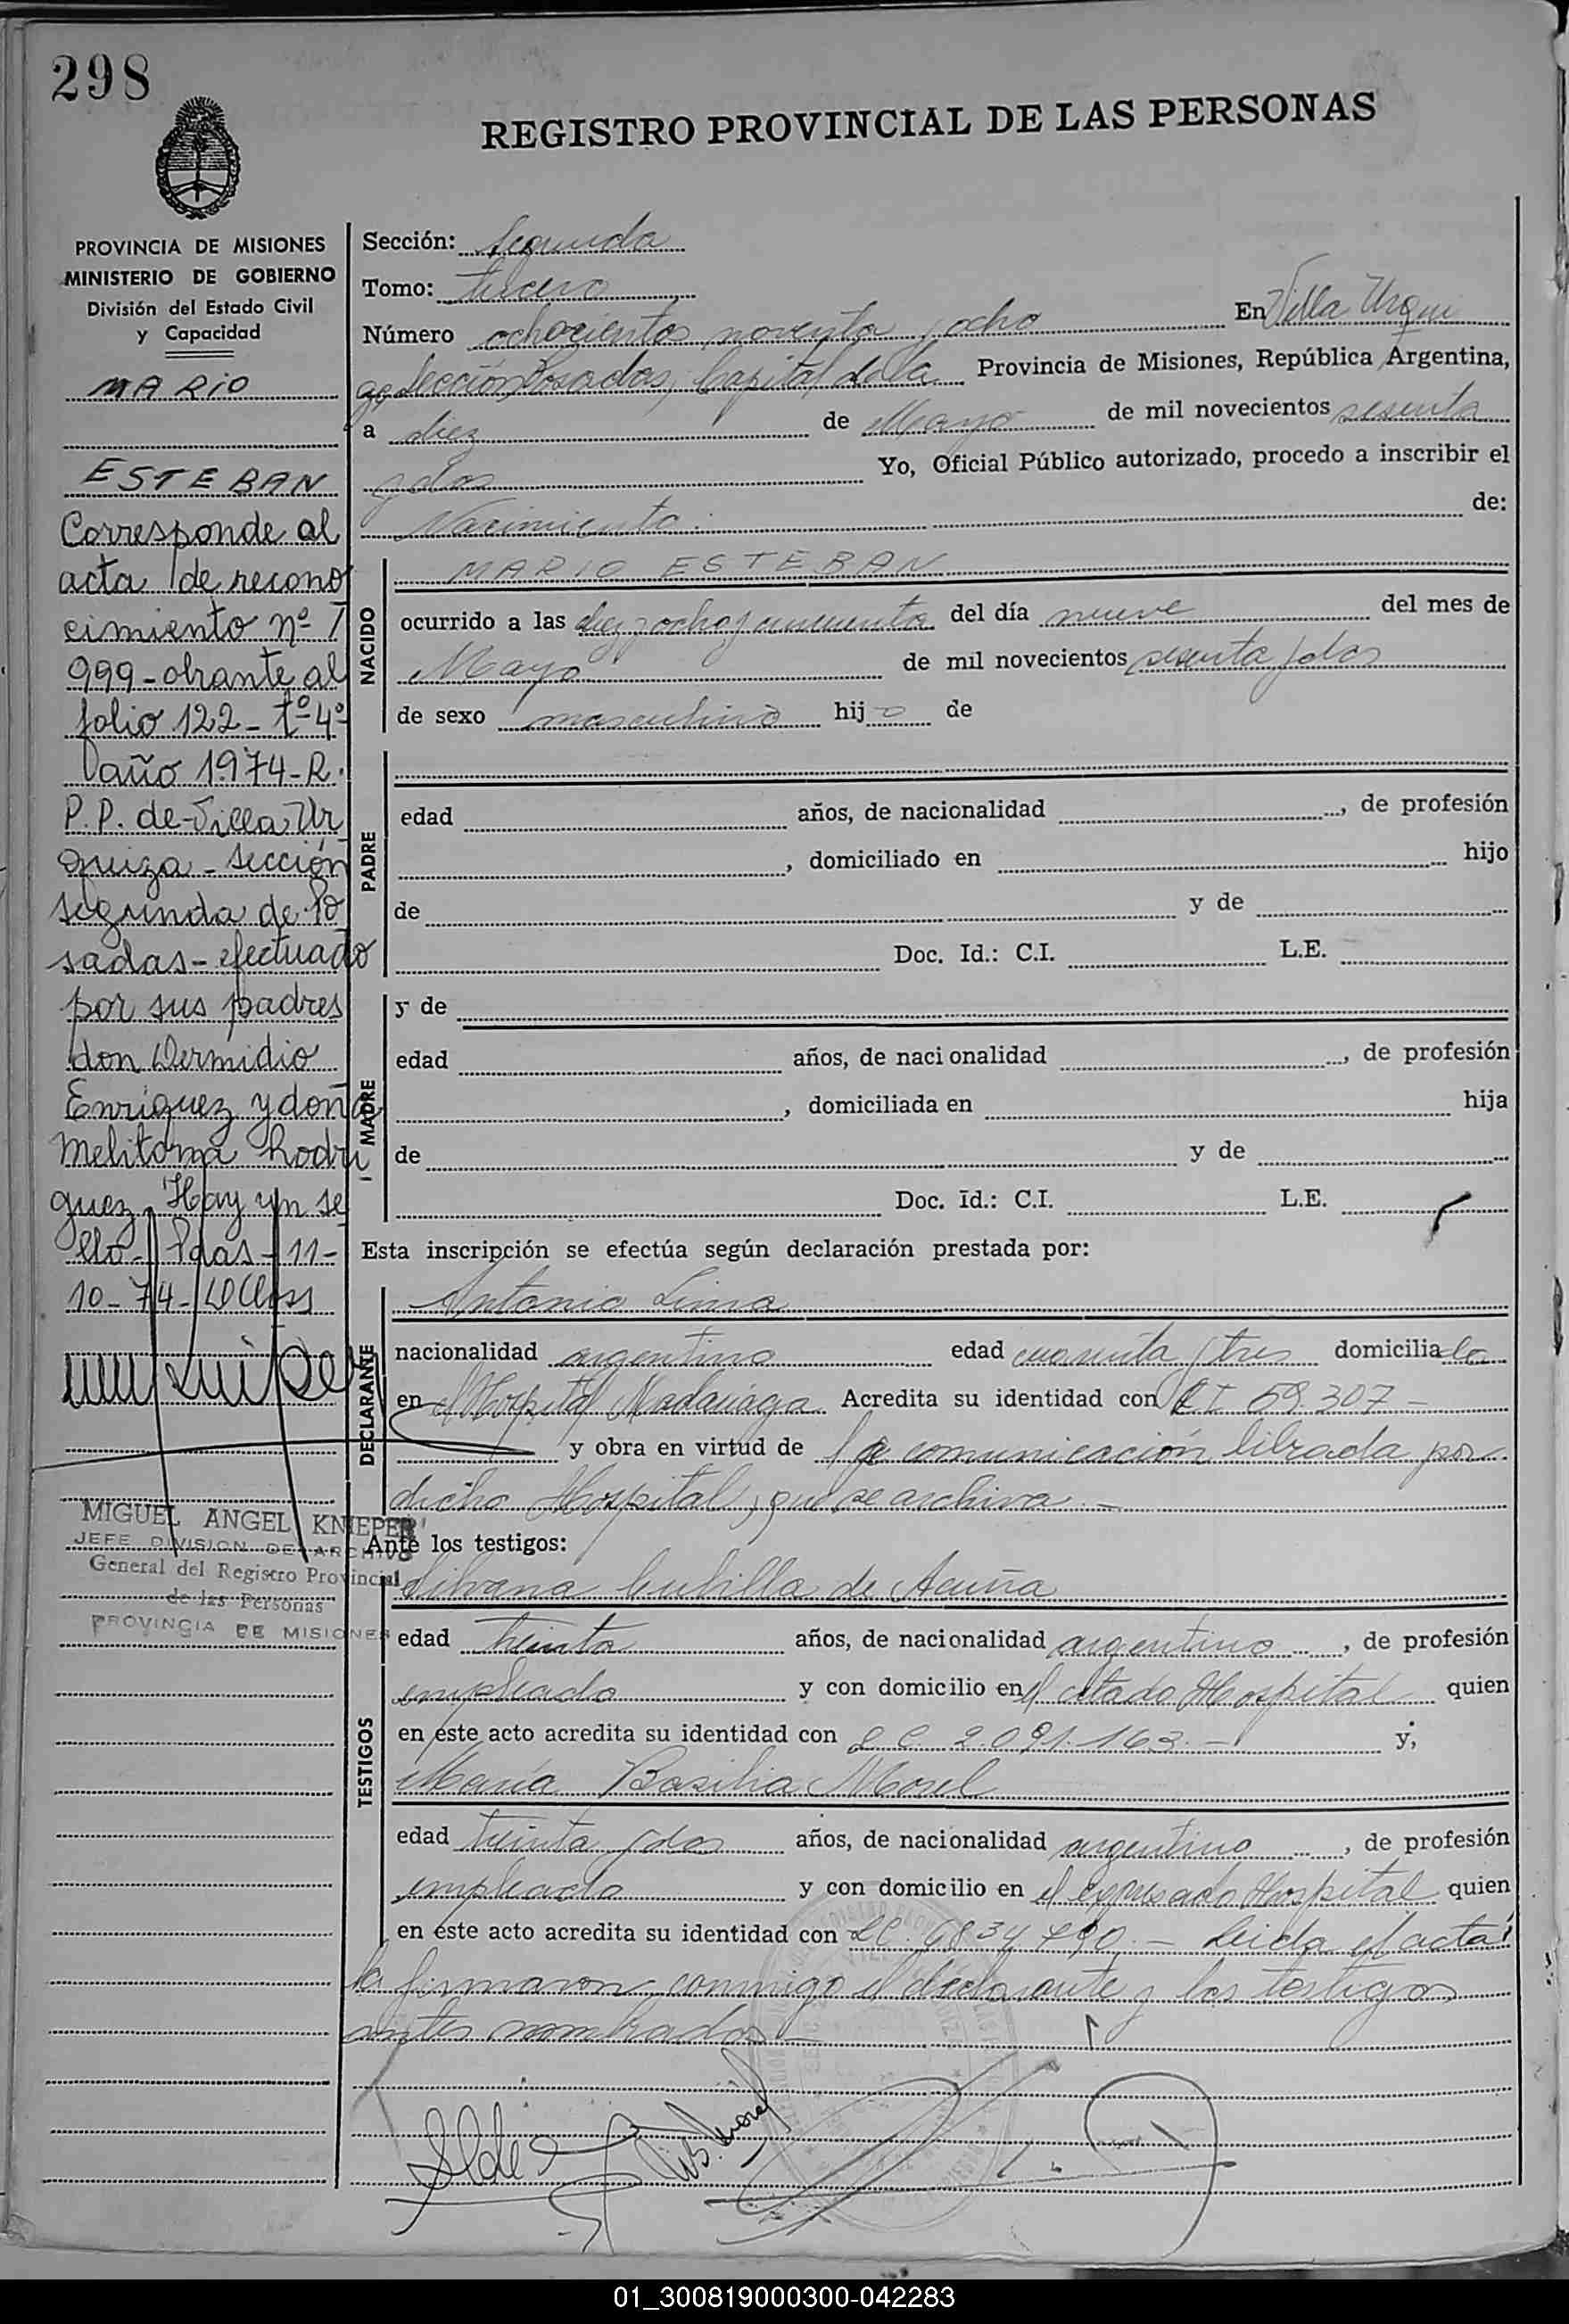 298
REGISTRO PROVINCIAL DE LAS PERSONAS
PROVINCIA DE MISIONES
MINISTERIO DE GOBIERNO
División del Estado Civil
y Capacidad
MARIO
ESTEBAN
Corresponde al
acta de recono
cimiento nº T
999 - obrante al
folio 122 - tº 4º
año 1974 - R.
P. P. de Villa Ur
quiza - sección
segunda de Po
sadas - efectuado
por sus padres
don Dermidio
Enriquez y doña
Melitona Rodri
guez. Hay un se
llo - Pdas - 11 -
10 - 74 -
MIGUEL ANGEL KNIEPER
JEFE DIVISION DE ARCHIVO
General del Registro Provincial
de las Personas
PROVINCIA DE MISIONES
Sección: Segunda
Tomo: tercero
Número ochocientos noventa y ocho En Villa Urqui
za, Sección Posadas, Capital de la Provincia de Misiones, República Argentina,
a diez de Mayo de mil novecientos sesenta
y dos Yo, Oficial Público autorizado, procedo a inscribir el
Nacimiento de:
NACIDO
MARIO ESTEBAN
ocurrido a las diez y ocho y cincuenta del día nueve del mes de
Mayo de mil novecientos sesenta y dos
de sexo masculino hijo de
PADRE
edad años, de nacionalidad , de profesión
, domiciliado en hijo
de y de
Doc. Id.: C.I. L.E.
MADRE
y de
edad años, de naci onalidad , de profesión
, domiciliada en hija
de y de
Doc. Id.: C.I. L.E.
Esta inscripción se efectúa según declaración prestada por:
DECLARANTE
Antonio Lima
nacionalidad argentino edad cuarenta y tres domiciliado
en el Hospital Madariaga Acredita su identidad con C I 59.307 -
y obra en virtud de la comunicación librada por
dicho Hospital, que se archiva. -
Ante los testigos:
TESTIGOS
Silvana Cubilla de Acuña
edad treinta años, de nacionalidad argentino , de profesión
empleado y con domicilio en el citado Hospital quien
en este acto acredita su identidad con L C 2.091.163. - y;
María Basilia Morel
edad treinta y dos años, de nacionalidad argentino , de profesión
empleado y con domicilio en el expresado Hospital quien
en este acto acredita su identidad con LC. 6834790. - Leida el acta
la firmaron conmigo el declarante y los testigos
antes nombrados -
01_300819000300-042283